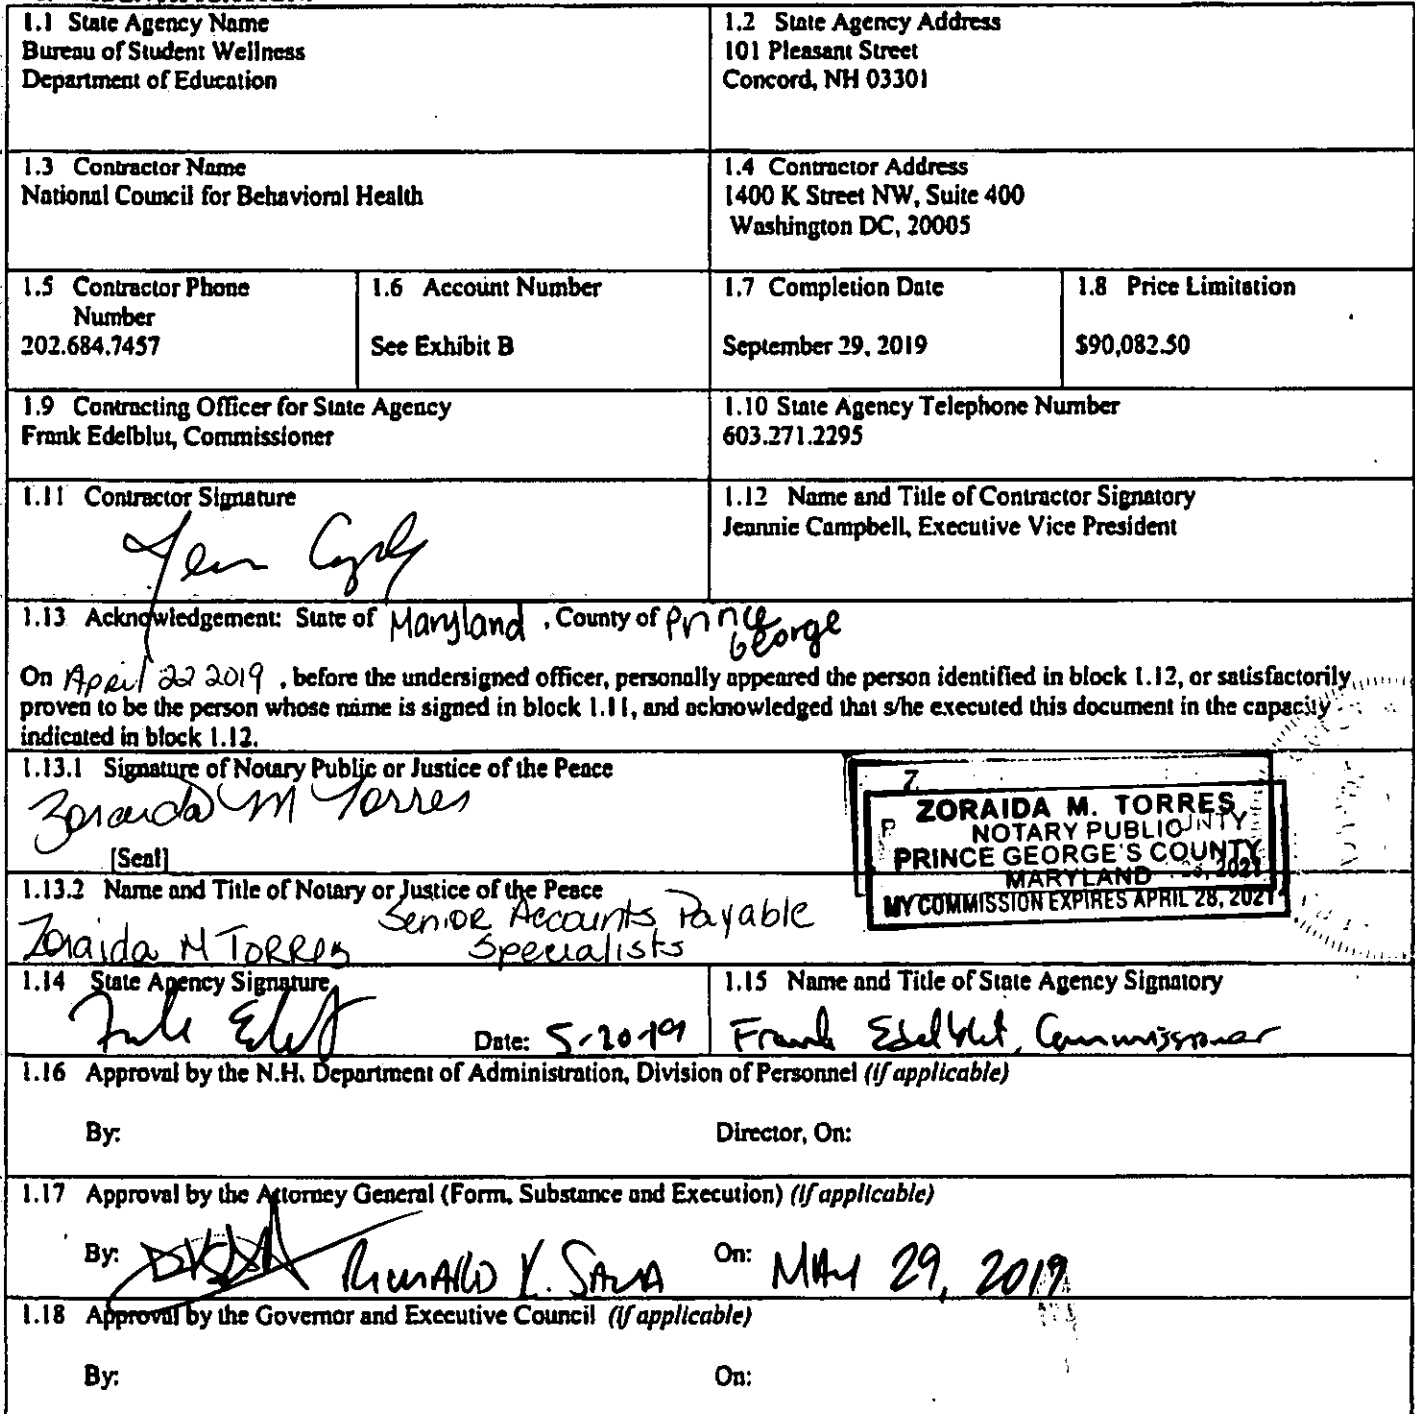 1.1 State Agency Name
Bureau of Student Wellness
Department of Education
1.2 State Agency Address
101 Pleasant Street
Concord, NH 03301
1.3 Contractor Name
National Council for Behavioral Health
1.4 Contractor Address
1400 K Street NW, Suite 400
Washington DC, 20005
1.5 Contractor Phone
Number
202.684.7457
1.6 Account Number
See Exhibit B
1.7 Completion Date
September 29, 2019
1.8 Price Limitation
$90,082.50
1.9 Contracting Officer for State Agency
Frank Edelblut, Commissioner
1.10 State Agency Telephone Number
603.271.2295
1.11 Contractor Signature
1.12 Name and Title of Contractor Signatory
Jeannie Campbell, Executive Vice President
1.13 Acknowledgement: State of Maryland, County of Prince
George
On April 22 2019, before the undersigned officer, personally appeared the person identified in block 1.12, or satisfactorily
proven to be the person whose name is signed in block 1.11, and acknowledged that s/he executed this document in the capacity
indicated in block 1.12.
1.13.1 Signature of Notary Public or Justice of the Peace
Zoraida M Torres
[Seal]
ZORAIDA M. TORRES
NOTARY PUBLIC
PRINCE GEORGE'S COUNTY
MARYLAND
MY COMMISSION EXPIRES APRIL 28, 2021
1.13.2 Name and Title of Notary or Justice of the Peace
Zoraida M Torres Senior Accounts Payable
Specialists
1.14 State Agency Signature
Date: 5-20-19
1.15 Name and Title of State Agency Signatory
Frank Edelblut, Commissioner
1.16 Approval by the N.H. Department of Administration, Division of Personnel (if applicable)
By:
Director, On:
1.17 Approval by the Attorney General (Form, Substance and Execution) (if applicable)
By:
On: MAY 29, 2019
1.18 Approval by the Governor and Executive Council (if applicable)
By:
On: